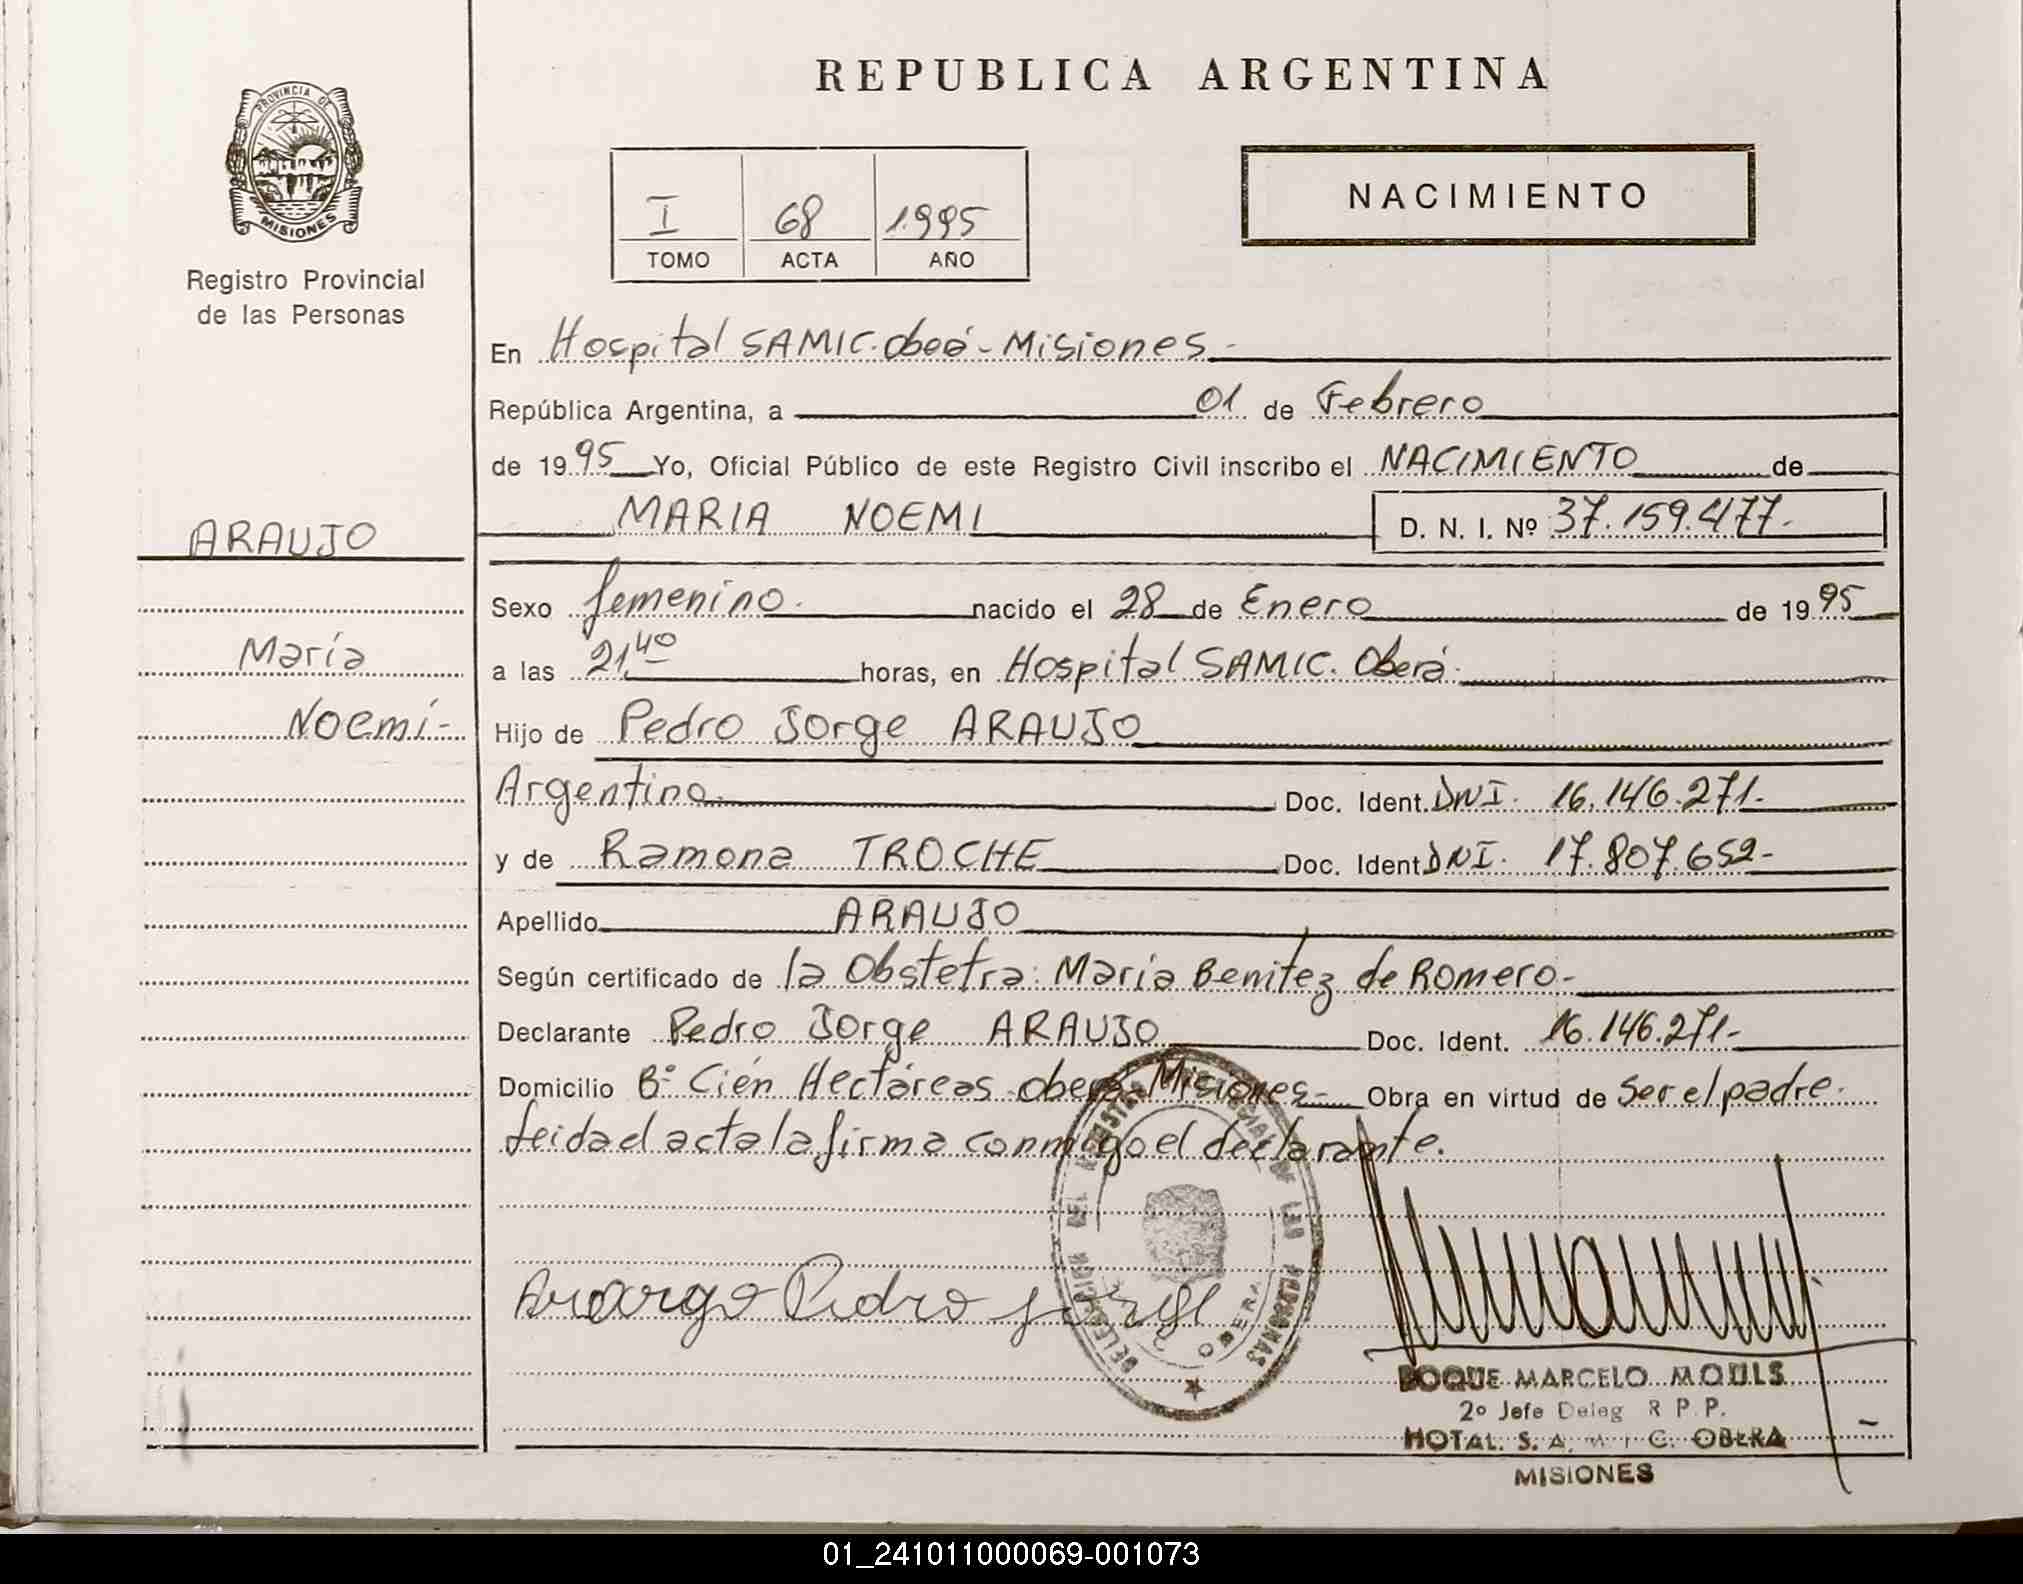 REPUBLICA ARGENTINA
PROVINCIA DE
MISIONES
Registro Provincial
de las Personas
NACIMIENTO
I 68 1995
TOMO ACTA AÑO
En Hospital SAMIC. Oberá - Misiones -
República Argentina, a 01 de Febrero
de 1995 Yo, Oficial Público de este Registro Civil inscribo el NACIMIENTO de
MARIA NOEMI D. N. I. Nº 37.159.477.
ARAUJO
María
Noemí-
Sexo femenino. nacido el 28 de Enero de 1995
a las 21,40 horas, en Hospital SAMIC. Oberá.
Hijo de Pedro Jorge ARAUJO
Argentino Doc. Ident. DNI. 16.146.271.-
y de Ramona TROCHE Doc. Ident. DNI. 17.807.652-
Apellido ARAUJO
Según certificado de la Obstetra: María Benitez de Romero-
Declarante Pedro Jorge ARAUJO Doc. Ident. 16.146.271-
Domicilio Bº Cién Hectáreas-oberá Misiones- Obra en virtud de Ser el padre.
leida el acta la firma conmigo el declarante.
Pedro Jorge
DELEGACION DEL REGISTRO PROVINCIAL DE LAS PERSONAS
OBERA
ROQUE MARCELO
2º Jefe Deleg R P.P.
HOTAL. S. A. M I C. OBERA
MISIONES
01_241011000069-001073